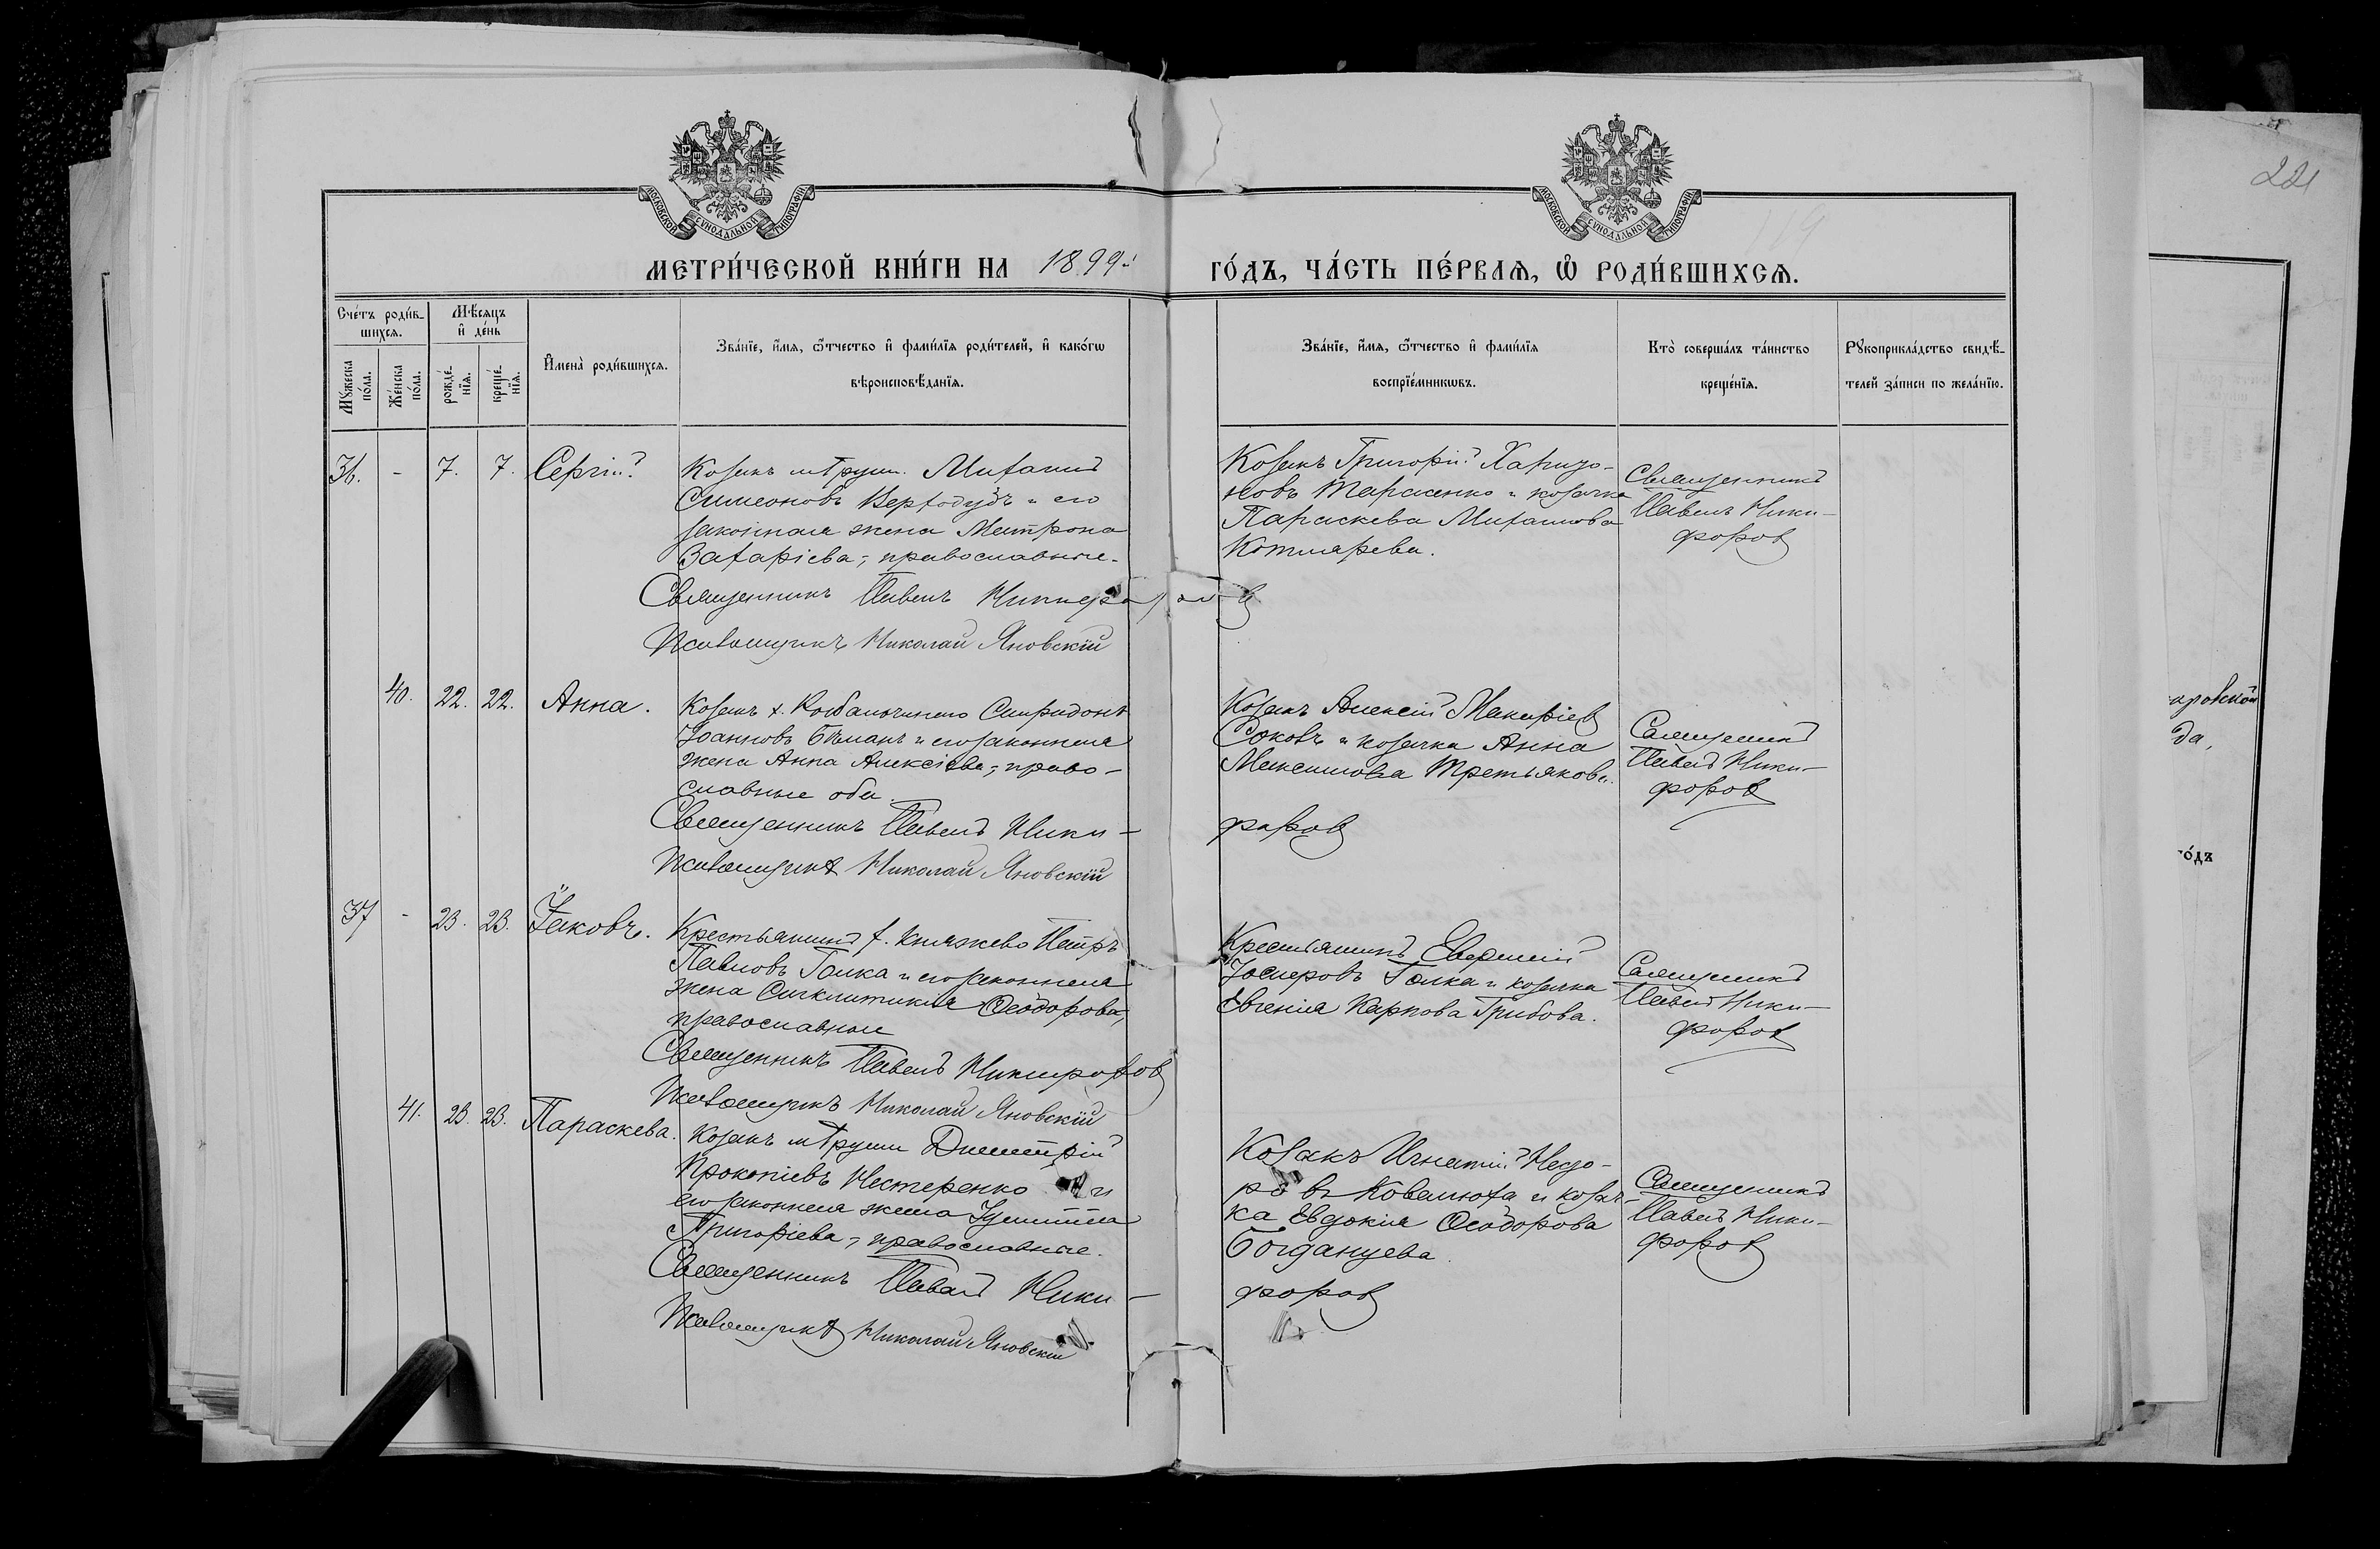 221
МОСКОВСКОЙ СѴНОДАЛЬНОЙ ТИПОГРАФІИ
МОСКОВСКОЙ СѴНОДАЛЬНОЙ ТИПОГРАФІИ
МЕТРИ́ЧЕСКОЙ КНИ́ГИ НА 1899 ГО́ДЪ, ЧА́СТЬ ПЕ́РВАѦ, Ѡ҆ РОДИ́ВШИХСѦ.
Сче́тъ роди́в-
шихсѧ.
Мꙋ́жеска по́ла.
Же́нска по́ла.
Мѣ́сѧцъ
и҆ де́нь
рожде́-
нїѧ.
креще́-
нїѧ.
И҆мена̀ роди́вшихсѧ.
Зва́нїе, и҆́мѧ, ѻ҆́тчество и҆ фами́лїѧ роди́телей, и҆ како́гѡ
вѣроисповѣ́данїѧ.
Зва́нїе, и҆́мѧ, ѻ҆́тчество и҆ фами́лїѧ
воспрїе́мникѡвъ.
Кто̀ соверша́лъ та́инство
креще́нїѧ.
Рꙋкоприкла́дство свидѣ́-
телей за́писи по жела́нїю.
36. - 7. 7. Сергій
Козакъ м Груни Михаилъ
Симеоновъ Верходубъ и его
законная жена Матрона
Захаріева, православные.
Священникъ Павелъ Никифоров
Псаломщикъ Николай Яновскій
Козакъ Григорій Харито-
новъ Тарасенко и козачка
Параскева Михаилова
Котлярева.
Священникъ
Павелъ Ники-
форов
40. 22. 22. Анна.
Козакъ х. Спиридонъ
Іоанновъ и его законная
жена Анна Алексіева, право-
славные оба.
Священникъ Павелъ Ники-
форов
Псаломщикъ Николай Яновскій
Козакъ Алексій Макаріев
Соковъ и козачка Анна
Максимова Третьякова.
Священникъ
Павелъ Ники-
форов
37 - 23. 23. Іаковъ.
Крестьянинъ х. Княжево Петръ
Павловъ Галка и его законная
жена Сигклитикія Ѳеодорова,
православные
Священникъ Павелъ Никифоров
Псаломщикъ Николай Яновскій
Крестьянинъ Евфимій
Іосифовъ Галка и козачка
Евгенія Карпова Грибова.
Священникъ
Павелъ Ники-
форов
41. 23. 23. Параскева.
Козакъ м Груни Димитрій
Прокопіевъ Нестеренко и
его законная жена Іулитта
Григоріева, православные.
Священникъ Павелъ Ники-
форов
Псаломщикъ Николай Яновскій
Козакъ Игнатій
Ковалюха и козач-
ка Евдокія Ѳеодорова
Богданцева
Священникъ
Павелъ Ники-
форов
аровской
да,
го́дъ